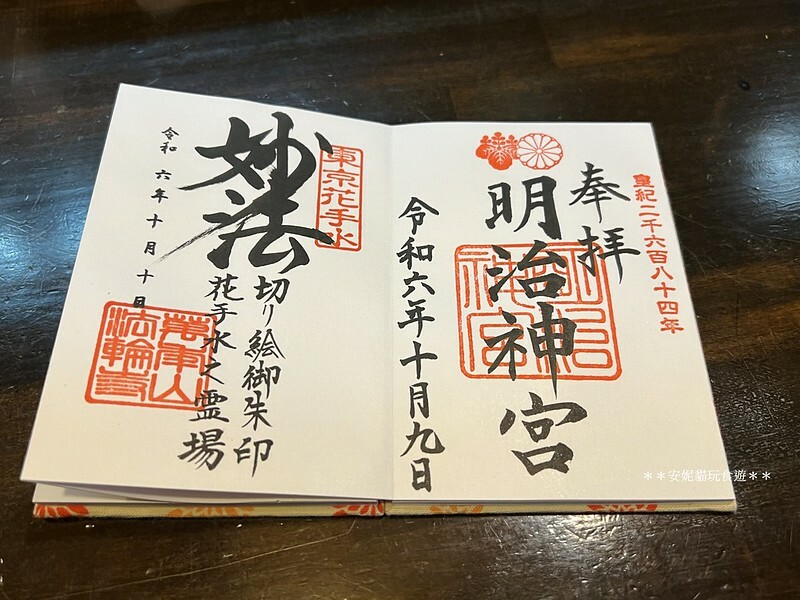 皇紀二千六百八十四年
奉拝
明治神宮
明治神宮
令和六年十月九日
東京花手水
妙法
切り絵御朱印
花手水之霊場
令和六年十月十日
**安妮貓玩食遊**